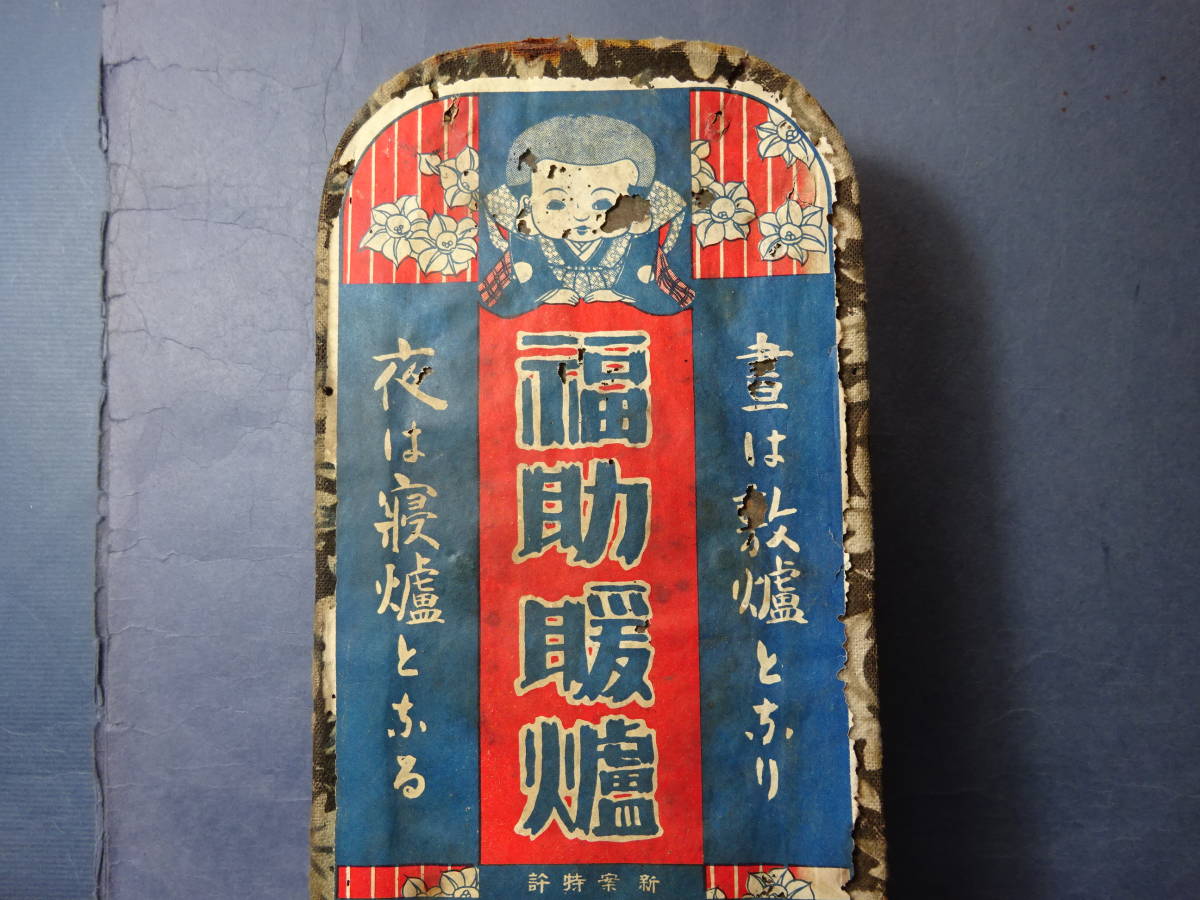 晝は敷爐となり
福助暖爐
夜は寢爐となる
新案特許